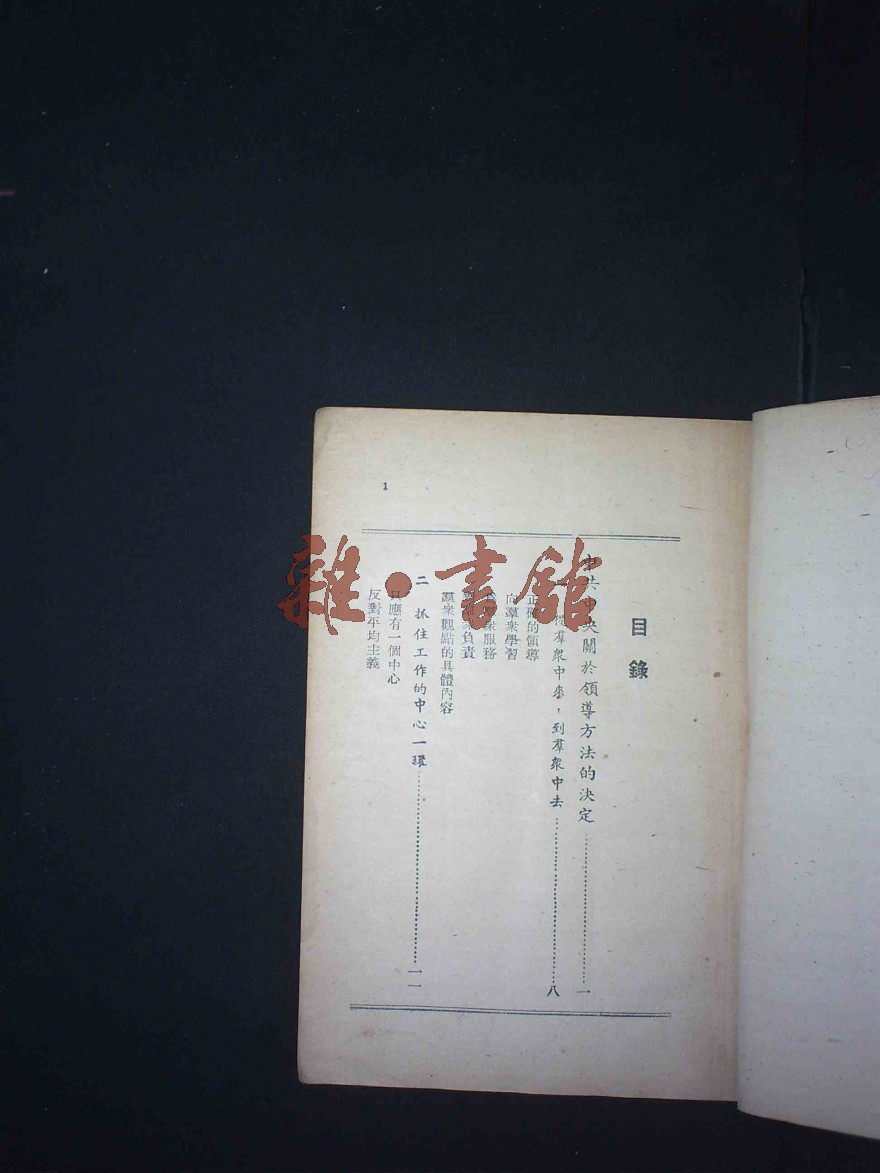 目錄
中共中央關於領導方法的決定……一
從羣衆中來，到羣衆中去……八
正確的領導
向羣衆學習
衆服務
負責
羣衆觀點的具體內容
二 抓住工作的中心一環……一一
只應有一個中心
反對平均主義
1
雜·書館